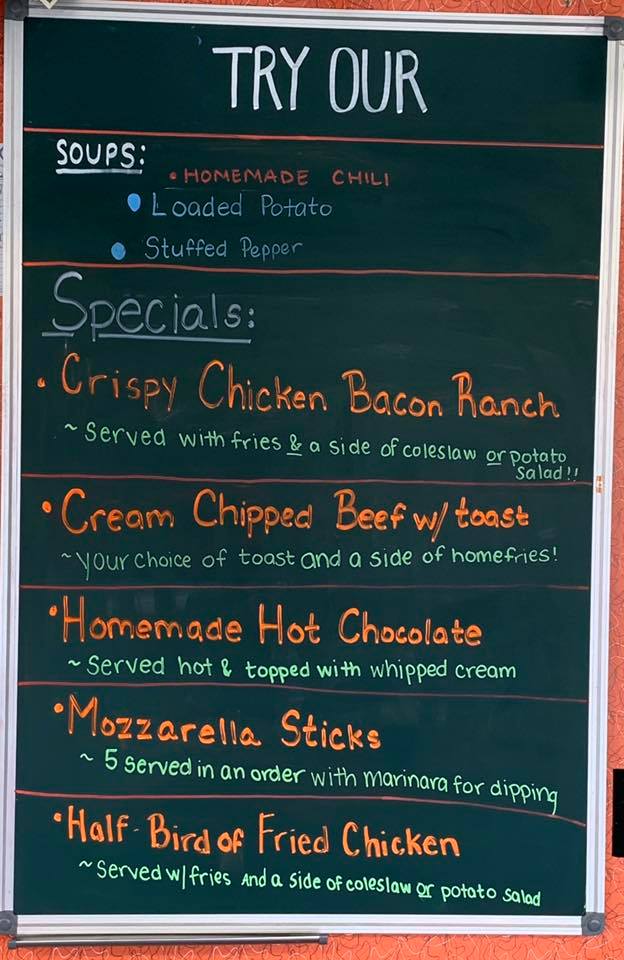 TRY OUR
SOUPS:
• HOMEMADE CHILI
• Loaded Potato
• Stuffed Pepper
Specials:
• Crispy Chicken Bacon Ranch
~ Served with fries & a side of coleslaw or potato
Salad!!
• Cream Chipped Beef w/ toast
~ your choice of toast and a side of homefries!
• Homemade Hot Chocolate
~ Served hot & topped with whipped cream
• Mozzarella Sticks
~ 5 served in an order with marinara for dipping
• Half-Bird of Fried Chicken
~ Served w/ fries And a side of coleslaw or potato salad